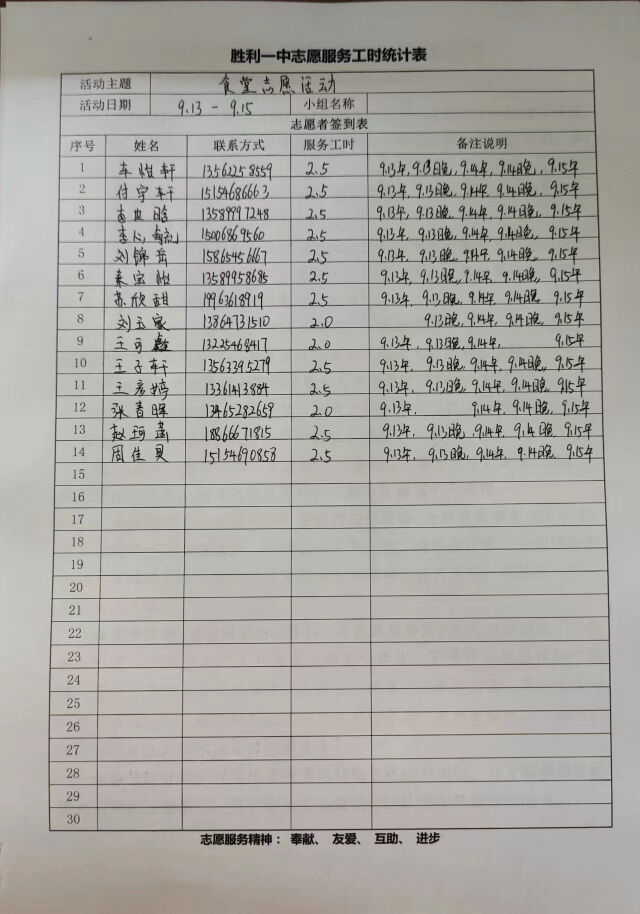 胜利一中志愿服务工时统计表
活动主题 食堂志愿活动
活动日期 9.13 - 9.15 小组名称
志愿者签到表
序号 姓名 联系方式 服务工时 备注说明
1 李怡轩 13562258559 2.5 9.13午, 9.13晚, 9.14午, 9.14晚, 9.15午
2 付宇轩 15154686663 2.5 9.13午, 9.13晚, 9.14午, 9.14晚, 9.15午
3 13589997248 2.5 9.13午, 9.13晚, 9.14午, 9.14晚, 9.15午
4 李心 15006869560 2.5 9.13午, 9.13晚, 9.14午, 9.14晚, 9.15午
5 刘锦岳 15865456167 2.5 9.13午, 9.13晚, 9.14午, 9.14晚, 9.15午
6 怡 13589958685 2.5 9.13午, 9.13晚, 9.14午, 9.14晚, 9.15午
7 苏欣甜 19963618919 2.5 9.13午, 9.13晚, 9.14午, 9.14晚 9.15午
8 刘玉家 13864731510 2.0 9.13晚, 9.14午, 9.14晚, 9.15午
9 王可鑫 13225468417 2.0 9.13午, 9.13晚, 9.14午, 9.15午
10 王子轩 13563395279 2.5 9.13午, 9.13晚, 9.14午, 9.14晚, 9.15午
11 王彦婷 13361413884 2.5 9.13午, 9.13晚, 9.14午, 9.14晚, 9.15午
12 张春晖 13465282659 2.0 9.13午, 9.14午, 9.14晚, 9.15午
13 赵珂菡 18866671815 2.5 9.13午, 9.13晚, 9.14午, 9.14晚, 9.15午
14 周佳昊 15154690858 2.5 9.13午, 9.13晚, 9.14午, 9.14晚 9.15午
15
16
17
18
19
20
21
22
23
24
25
26
27
28
29
30
志愿服务精神： 奉献、 友爱、 互助、 进步